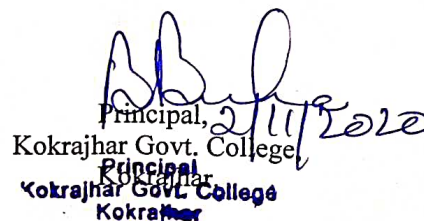 Principal, 2/11/2020
Kokrajhar Govt. College,
Kokrajhar
Principal
Kokrajhar Govt. College
Kokrajhar